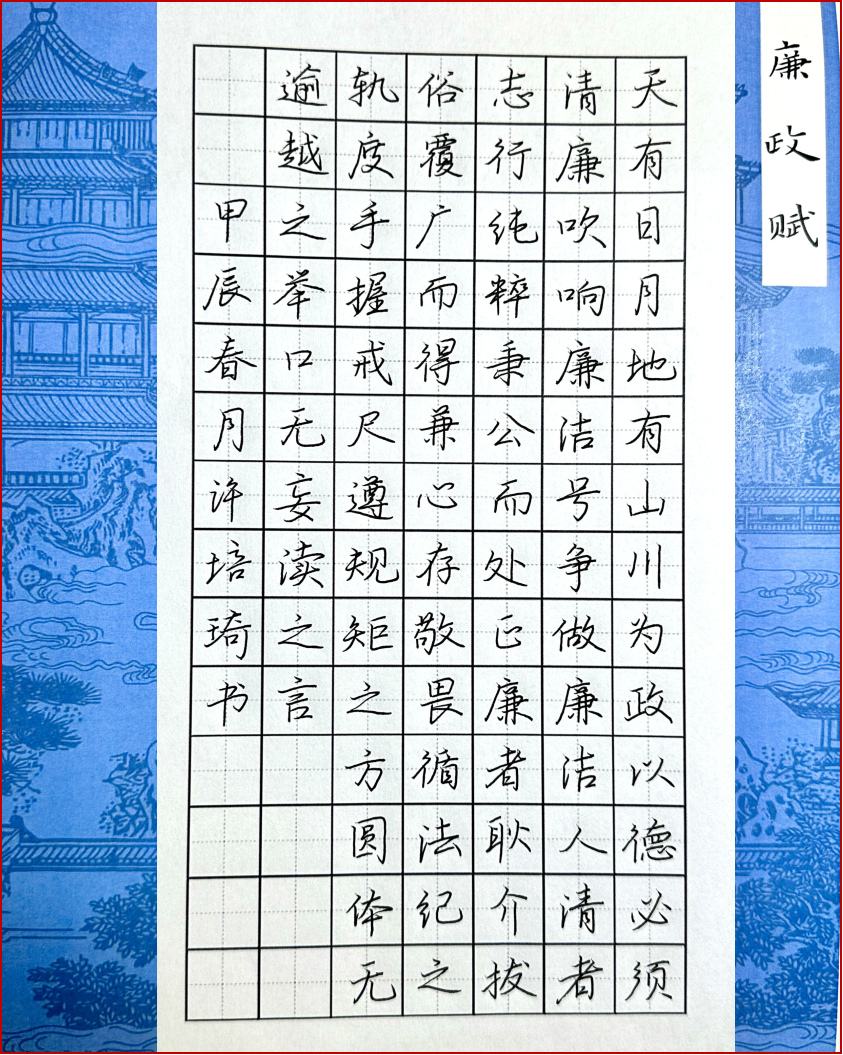 廉政赋
天有日月地有山川为政以德必须
清廉吹响廉洁号争做廉洁人清者
志行纯粹秉公而处正廉者耿介拔
俗覆广而得兼心存敬畏循法纪之
轨度手握戒尺遵规矩之方圆体无
逾越之举口无妄渎之言
甲辰春月许培琦书